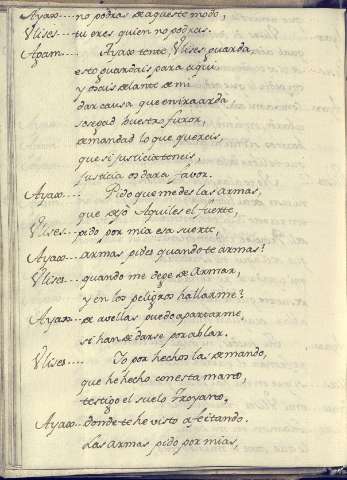 Ayax.... no podras de aqueste modo,
Vlises... tu eres quien no podras.
Agam.... Ayax tente, Vlises guarda,
esto guardais para aqui
y dais delante de mi
dar causa que en ira arda
sosegad buestro furor,
demandad lo que quereis,
que si justicia teneis,
justicia os dara fauor.
Ayax.... Pido que me des las armas,
que dejo Aquiles el fuerte,
Vlises.. pido por mia esa suerte,
Ayax.... armas pides quando te armas?
Vlises.... quando me dege de armar,
y en los peligros hallarme?
Ayax... de avellas puedo apartarme,
si han de darse por ablar.
Vlises.... Yo por hechos las demando,
que he hecho con esta mano,
testigo el suelo Troyano,
Ayax.... donde te he visto afeitando.
Las armas pido por mias,